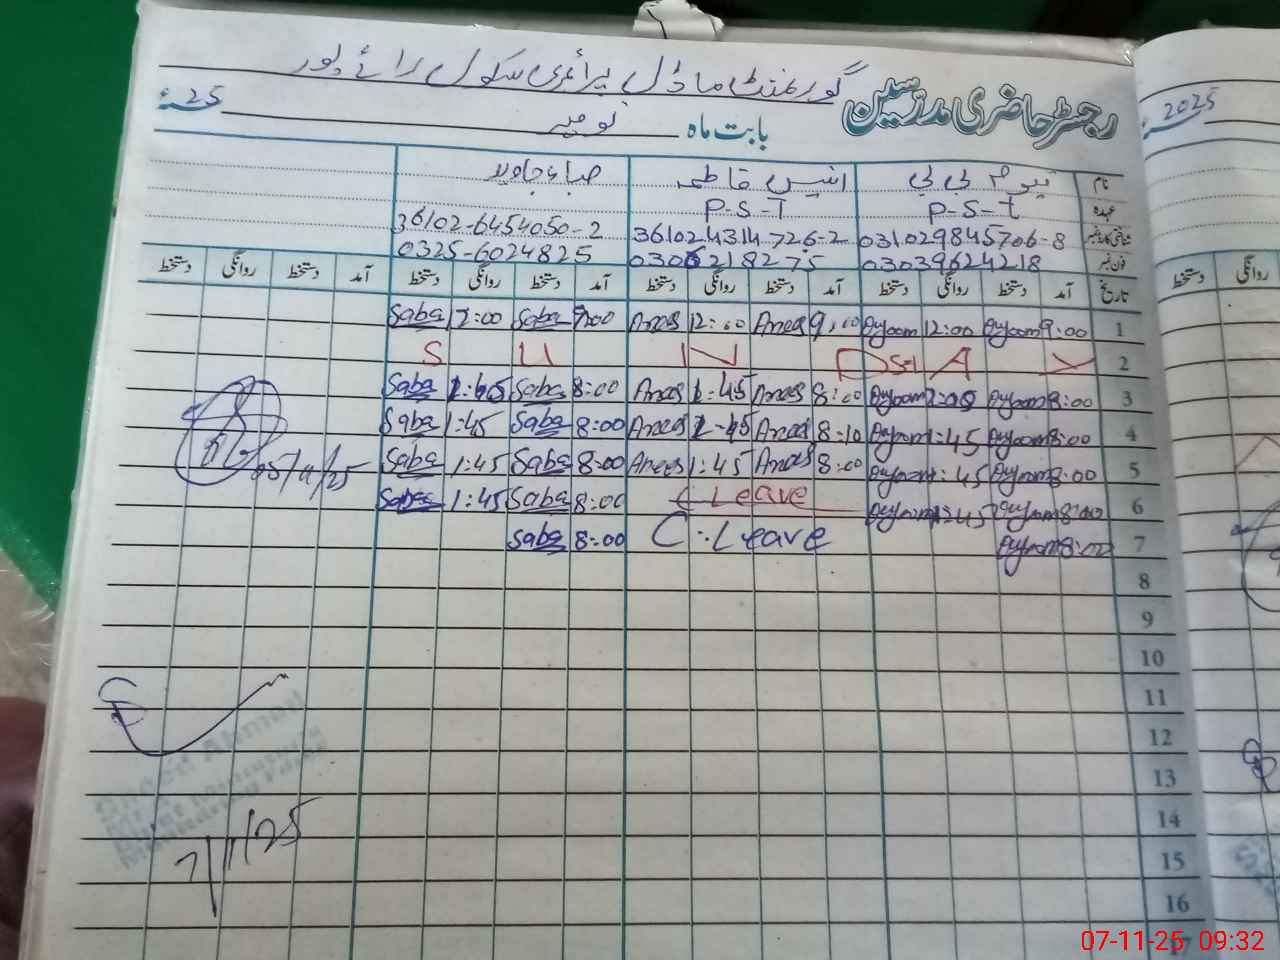 گورنمنٹ ماڈل پرائمری سکول رائے پور
رجسٹر حاضری مدرسین
بابت ماہ نومبر 25ء
2025ء
نام بی بی انیس فاطمہ صباء جاوید
عہدہ P-S-T P-S-T
شناختی کارڈ نمبر 031029845706-8 361024314726-2 36102-6454050-2
فون نمبر 03039624218 03062218275 0325-6024825
تاریخ آمد دستخط روانگی دستخط آمد دستخط روانگی دستخط آمد دستخط روانگی دستخط آمد دستخط روانگی دستخط
روانگی دستخط
1 9:00 Ayoom 12:00 Ayoom 9:00 Anees 12:00 Anees 9:00 Saba 12:00 Saba
2 S U N D A Y
3 8:00 Ayoom Ayoom 8:00 Anees 1:45 Anees 8:00 Saba 1:45 Saba
4 8:00 Ayoom 1:45 Ayoom 8:10 Anees 1:45 Anees 8:00 Saba 1:45 Saba
5 8:00 Ayoom 1:45 Ayoom 8:00 Anees 1:45 Anees 8:00 Saba 1:45 Saba
6 8:00 Ayoom 1:45 Ayoom C Leave 8:00 Saba 1:45 Saba
7 8:00 Ayoom C.Leave 8:00 Saba
8
9
10
11
12
13
14
15
16
17
05/11/25
7/11/25
07-11-25 09:32